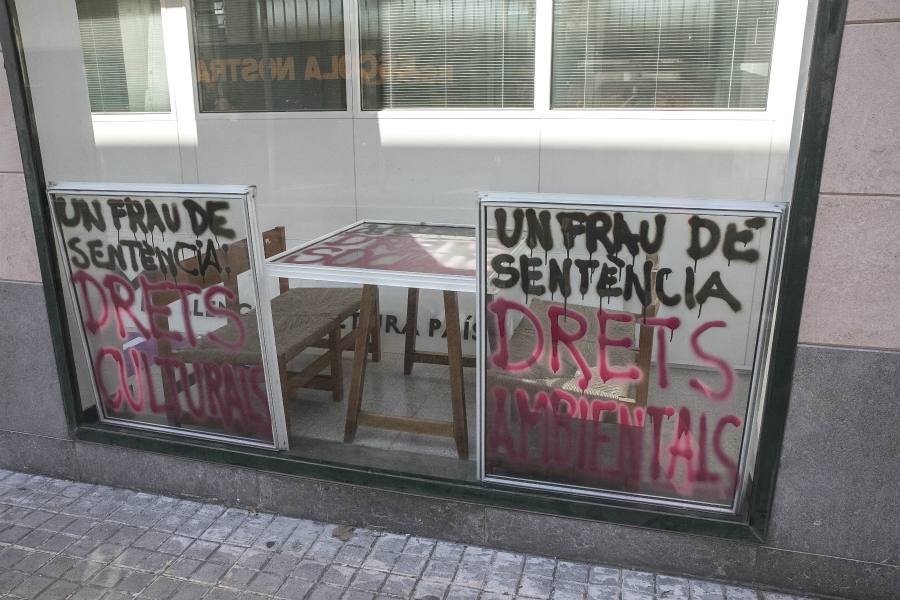 ESCOLA NOSTRA
UN FRAU DE
SENTÈNCIA!
DRETS
CULTURALS
DRETS
SO
LLENG
TURA PAÍS
UN FRAU DE
SENTÈNCIA
DRETS
AMBIENTALS